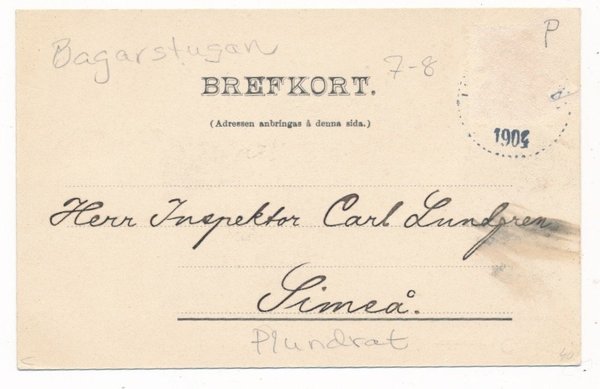 P
Bagarstugan
7-8
BREFKORT.
(Adressen anbringas å denna sida.)
1904
Herr Inspektor Carl Lundgren
Simeå.
Plundrat